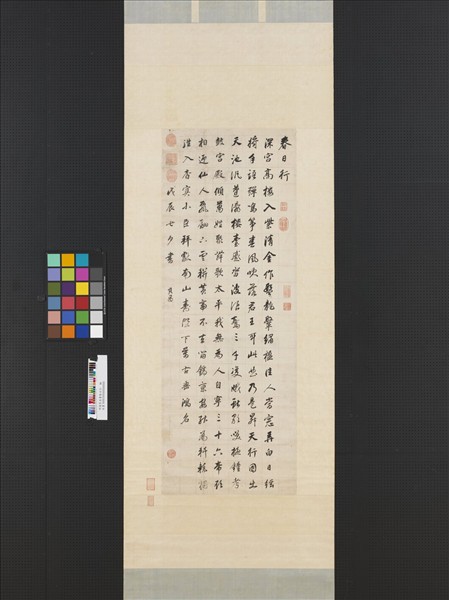 春日行
深宮高樓入紫清金作蛟龍盤繡楹佳人當窗弄白日絃
將手語彈鳴箏春風吹落君王耳此曲乃是昇天行因出
天池泛蓬瀛樓臺蹙沓波浪驚三千雙蛾獻歌笑撾鐘考
鼓宮殿傾萬姓聚舞歌太平我無為人自寧三十六帝欲
相迎仙人飄翩下雲軿黃帝不去留鎬京安能為軒轅獨
往入窅冥小臣拜獻南山壽陛下萬古垂鴻名
戊辰七夕書 其昌